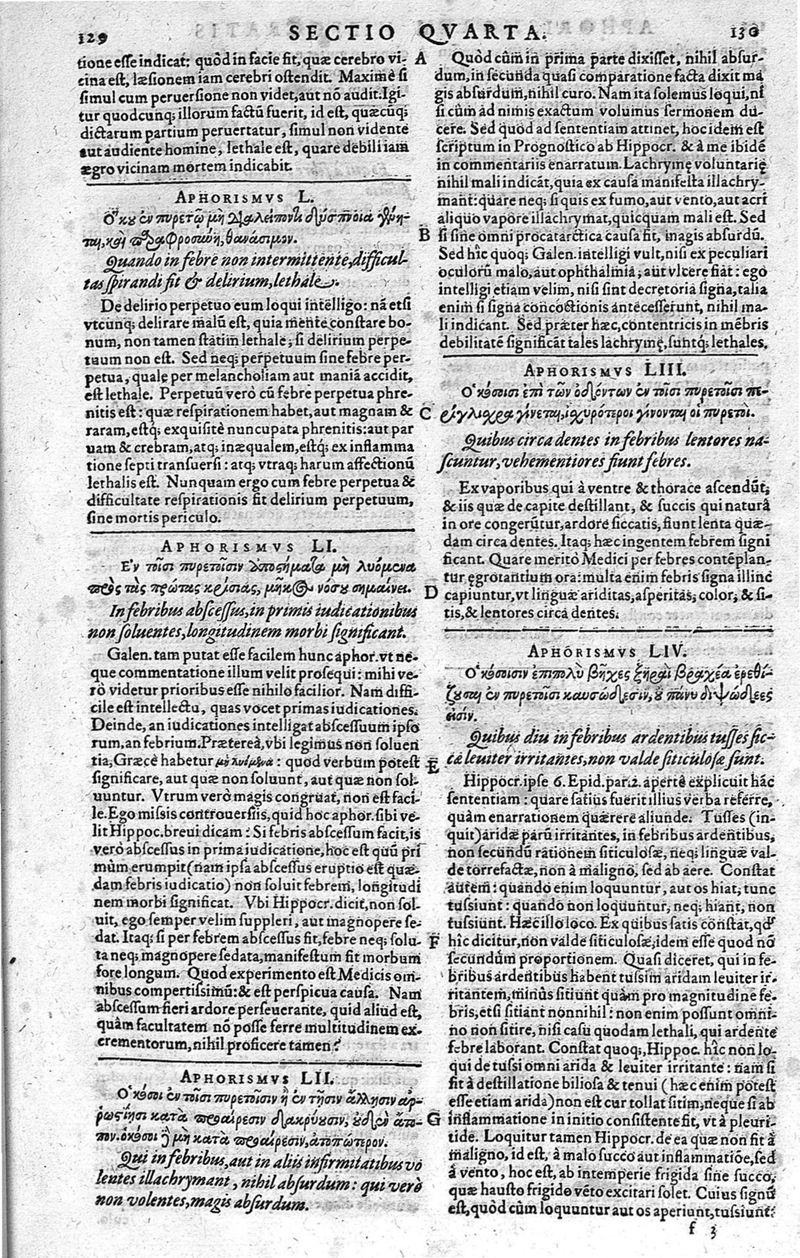 129
SECTIO QVARTA.
130
tione esse indicat: quòd in facie fit, quæ cerebro vi-
cina est, læsionem iam cerebri ostendit. Maximè si
simul cum peruersione non videt, aut nō audit. Igi-
tur quodcunq; illorum factū fuerit, id est, quæcūq;
dictarum partium peruertatur, simul non vidente
aut audiente homine, lethale est, quare debili iam
ægro vicinam mortem indicabit.
APHORISMVS L.
Ὅκου ἐν πυρετῷ μὴ διαλείποντι δύσπνοια γίνη-
ται, καὶ παραφροσύνη, θανάσιμον.
Quando in febre non intermittente, difficul-
tas spirandi fit & delirium, lethale.
De delirio perpetuo eum loqui intelligo: nā etsi
vtcunq; delirare malū est, quia mente constare bo-
num, non tamen statim lethale, si delirium perpe-
tuum non est. Sed neq; perpetuum sine febre per-
petua, quale per melancholiam aut maniā accidit,
est lethale. Perpetuū verò cū febre perpetua phre-
nitis est: quæ respirationem habet, aut magnam &
raram, estq; exquisitè nuncupata phrenitis: aut par
uam & crebram, atq; inæqualem, estq; ex inflamma
tione septi transuersi: atq; vtraq; harum affectionū
lethalis est. Nunquam ergo cum febre perpetua &
difficultate respirationis fit delirium perpetuum,
sine mortis periculo.
APHORISMVS LI.
Ἐν τοῖσι πυρετοῖσιν ἀποστήματα μὴ λυόμενα
πρὸς τὰς πρώτας κρίσιας, μῆκος νόσου σημαίνει.
In febribus abscessus, in primis iudicationibus
non soluentes, longitudinem morbi significant.
Galen. tam putat esse facilem hunc aphor. vt ne-
que commentatione illum velit prosequi: mihi ve-
rò videtur prioribus esse nihilo facilior. Nam diffi-
cile est intellectu, quas vocet primas iudicationes.
Deinde, an iudicationes intelligat abscessuum ipso
rum, an febrium. Præterea, vbi legimus non soluen
tia, Græcè habetur μὴ λυόμενα: quod verbum potest
significare, aut quæ non soluunt, aut quæ non sol-
uuntur. Vtrum verò magis congruat, non est faci-
le. Ego missis controuersiis, quid hoc aphor. sibi ve-
lit Hippoc. breui dicam: Si febris abscessum facit, is
verò abscessus in prima iudicatione, hoc est quū pri
mùm erumpit (nam ipsa abscessus eruptio est quæ-
dam febris iudicatio) non soluit febrem, longitudi
nem morbi significat. Vbi Hippocr. dicit, non sol-
uit, ego semper velim suppleri, aut magnopere se-
dat. Itaq; si per febrem abscessus fit, febre neq; solu-
ta neq; magnopere sedata, manifestum fit morbum
fore longum. Quod experimento est Medicis om-
nibus compertissimū: & est perspicua causa. Nam
abscessum fieri ardore perseuerante, quid aliud est,
quàm facultatem nō posse ferre multitudinem ex-
crementorum, nihil proficere tamen?
APHORISMVS LII.
Ὁκόσοι ἐν τοῖσι πυρετοῖσιν ἢ ἐν τῇσιν ἄλλῃσιν ἀρ-
ρωστίῃσι κατὰ προαίρεσιν δακρύουσιν, οὐδὲν ἄτο-
πον. ὁκόσοι δὲ μὴ κατὰ προαίρεσιν, ἀτοπώτερον.
Qui in febribus, aut in aliis infirmitatibus vo
lentes illachrymant, nihil absurdum: qui verò
non volentes, magis absurdum.
A
B
C
D
E
F
G
Quòd cùm in prima parte dixisset, nihil absur-
dum, in secunda quasi comparatione facta dixit ma
gis absurdum, nihil curo. Nam ita solemus loqui, ni
si cùm ad nimis exactum volumus sermonem du-
cere. Sed quòd ad sententiam attinet, hoc idem est
scriptum in Prognostico ab Hippocr. & à me ibidē
in commentariis enarratum. Lachrymę voluntarię
nihil mali indicāt, quia ex causa manifesta illachry-
mant: quare neq; si quis ex fumo, aut vento, aut acri
aliquo vapore illachrymat, quicquam mali est. Sed
si sine omni procatarctica causa fit, magis absurdū.
Sed hîc quoq; Galen. intelligi vult, nisi ex peculiari
oculorū malo, aut ophthalmia, aut vlcere fiāt: ego
intelligi etiam velim, nisi sint decretoria signa, talia
enim si signa concoctionis antecesserunt, nihil ma-
li indicant. Sed præter hæc, contentricis in mēbris
debilitatē significāt tales lachrymę, suntq; lethales.
APHORISMVS LIII.
Ὁκόσοισι ἐπὶ τῶν ὀδόντων ἐν τοῖσι πυρετοῖσι πε-
ρίγλισχρα γίνεται, ἰσχυρότεροι γίνονται οἱ πυρετοί.
Quibus circa dentes in febribus lentores na-
scuntur, vehementiores fiunt febres.
Ex vaporibus qui à ventre & thorace ascendūt,
& iis quæ de capite destillant, & succis qui naturà
in ore congerūtur, ardore siccatis, fiunt lenta quæ-
dam circa dentes. Itaq; hæc ingentem febrem signi
ficant. Quare meritò Medici per febres contēplan-
tur ęgrotantium ora: multa enim febris signa illinc
capiuntur, vt linguæ ariditas, asperitas, color, & si-
tis, & lentores circa dentes.
APHORISMVS LIV.
Ὁκόσοισιν ἐπιπολὺ βῆχες ξηραὶ βραχέα ἐρεθί-
ζουσαι ἐν πυρετοῖσι καυσώδεσιν, οὐ πάνυ διψώδεές
εἰσιν.
Quibus diu in febribus ardentibus tusses sic-
cæ leuiter irritantes, non valde siticulosæ sunt.
Hippocr. ipse 6. Epid. par. 2. apertè explicuit hāc
sententiam: quare satius fuerit illius verba referre,
quàm enarrationem quærere aliunde. Tusses (in-
quit) aridæ parū irritantes, in febribus ardentibus,
non secundū rationem siticulosæ, neq; linguæ val-
de torrefactæ, non à maligno, sed ab aere. Constat
autem: quando enim loquuntur, aut os hiat, tunc
tussiunt: quando non loquuntur, neq; hiant, non
tussiunt. Hæc illo loco. Ex quibus satis cōstat, qđ
hîc dicitur, non valde siticulosæ, idem esse quod nō
secundùm proportionem. Quasi diceret, qui in fe-
bribus ardentibus habent tussim aridam leuiter ir-
ritantem, minùs sitiunt quàm pro magnitudine fe-
bris, etsi sitiant nonnihil: non enim possunt omni-
no non sitire, nisi casu quodam lethali, qui ardente
febre laborant. Constat quoq;, Hippoc. hîc non lo-
qui de tussi omni arida & leuiter irritante: nam si
fit à destillatione biliosa & tenui (hæc enim potest
esse etiam arida) non est cur tollat sitim, neque si ab
inflammatione in initio consistente fit, vt à pleuri-
tide. Loquitur tamen Hippocr. de ea quæ non fit à
maligno, id est, à malo succo aut inflammatiōe, sed
à vento, hoc est, ab intemperie frigida sine succo,
quæ hausto frigido vēto excitari solet. Cuius signū
est, quòd cùm loquuntur aut os aperiunt, tussiunt:
f 3